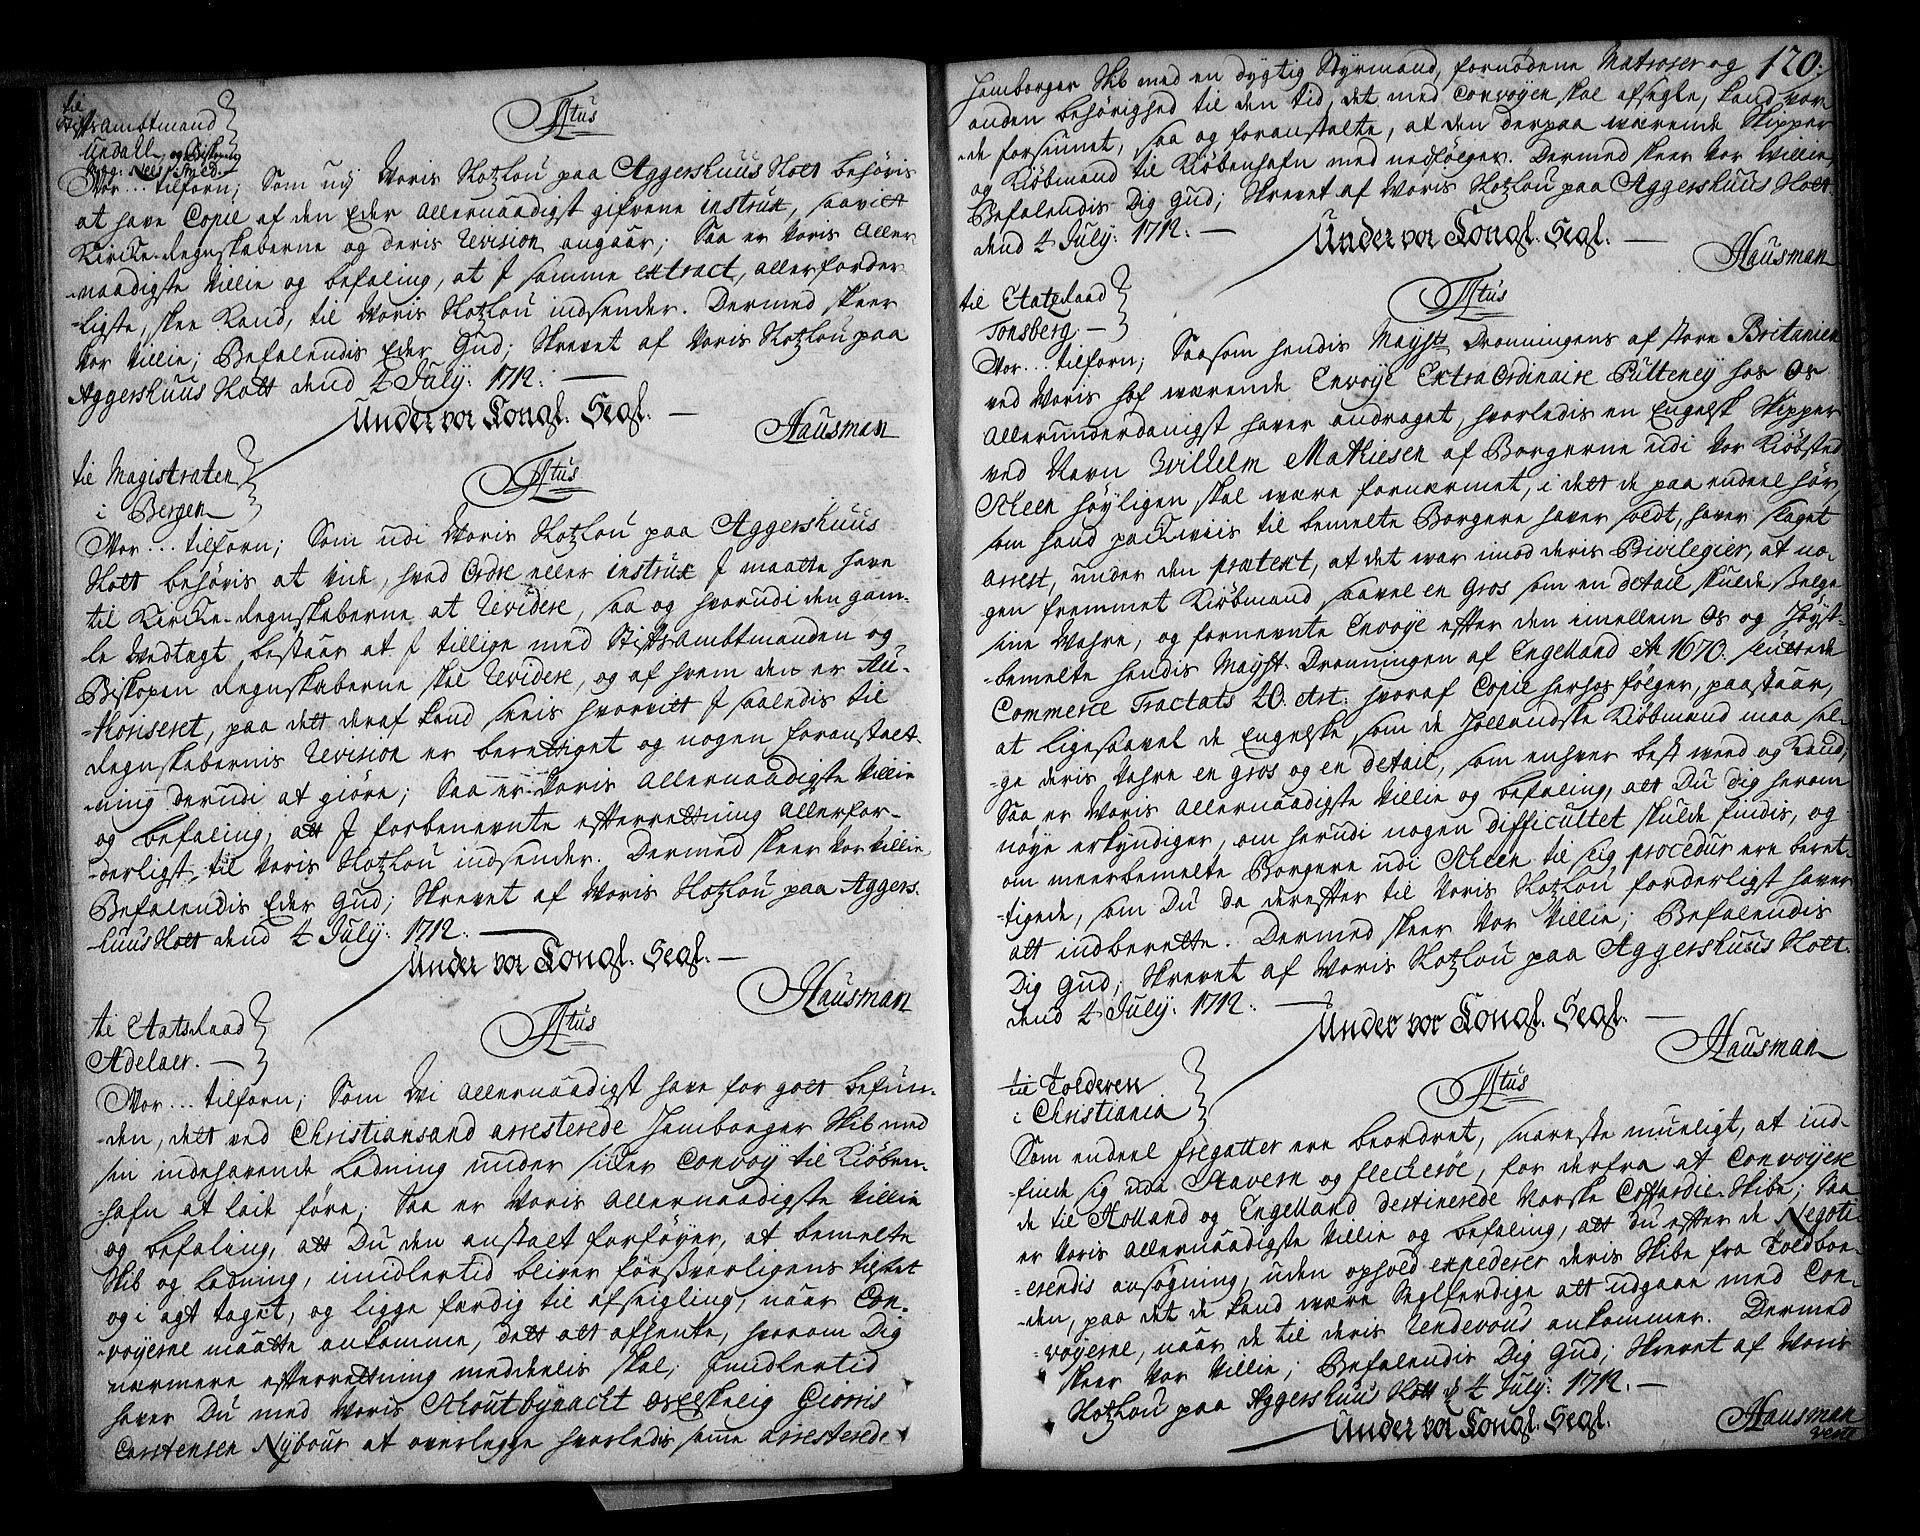 til
StiftsAmbtmand
Undall og Biskop
Mag: Nels Smed
Fr4tus
Vor... tilforn; Som udj Voris Slotzlou paa Aggershuus Slott behøvis
at have Copie af den Eder Allernaadigst gifvene instrux, saavit
Kircke-Regnskaberne og deris Revision angaar; Saa er Voris Aller-
-naadigste Villie og befaling, at I samme extract, allerforder-
-ligste, skee kand, til Voris Slotzlou indsender. Dermed skeer
Vor Villie; Befalendis Eder Gud; Skrevet af Voris Slotzlou paa
Aggershuus Slott dend 2 July: 1712.
Under vor Kongl. Segl.
Hausman
til Magistraten
i Bergen
Fr4tus
Vor... tilforn; Som udi Voris Slotzlou paa Aggershuus
Slott behøvis at vide, hvad Ordre eller instrux I maatte have
til Kircke-Regnskaberne at Revidere, saa og hvorudi den gam-
le Vedtegt bestaar at I tillige med StiftsAmbtmanden og
Biskopen Regnskaberne skal Revidere, og af hvem den er Au-
-thoriseret, paa dett deraf kand sees hvorvitt I saaledis til
Regnskabernis Revision er berettiget og nogen foranstalt-
ning derudi at giøre; Saa er Voris Allernaadigste Villie
og befaling, att I forbenevnte efterretning Allerfor-
-derligst til Voris Slotzlou indsender. Dermed skeer Vor Villie,
Befalendis Eder Gud; Skrevet af Voris Slotzlou paa Aggers-
huus Slott dend 2 July: 1712.
Under vor Kongl. Segl.
Hausman
til Etatsraad
Adelaer.
Fr4tus
Vor... tilforn; Som Wi Allernaadigst have for got befun-
-den, dett ved Christiansand arresterede Hamborger Skib med
sin indehavende Ladning under sicker Convoy til Kiøben-
-hafn at lade føre; Saa er Voris Allernaadigste Villie
og befaling, att Du den anstalt forføyer, at bemelte
Skib og Ladning, imidlertid bliver forsvarligens
og i agt taget, og ligge færdig til afseigling, naar Con-
-voyerne maatte ankomme, dett att afhente, hvorom Dig
nærmere efterretning meddeelis skal; Imidlertid
haver Du med Voris Schoutbynacht Velb. Giorris
Carstensen Nybour at overlegge hvorledis same arresterede
120.
Hamborger Skib med en dygtig Styrmand, fornødene Matroser og
anden behørighed til den tid, det med Convoyen skal afseigle, kand vor-
-de forsiunet, saa og foranstalte, at den derpaa værende Skipper
og Kiøbmand til Kiøbenhafn med nedfølger. Dermed skeer Vor Villie,
Befalendis Dig Gud; Skrevet af Voris Slotzlou paa Aggershuus Slott
dend 2 July: 1712.
Under vor Kongl. Segl.
Hausman
til Etatsraad
Tonsberg.
Fr4tus
Vor... tilforn; Saasom hendis Mayst: Dronningens af store Britanien
ved Voris hof værende Envoye ExtraOrdinaire Pulteney hos Os
Allerunderdanigst haver andraget, hvorledis en Engelsk Skipper
ved Navn Wilhelm Mathiesen af Borgerne udi Vor Kiøbsted
Scheen høyligen skal være fornærmet, i dett de paa endeel hør,
som hand packviis til bemelte Borgere haver soldt, haver slaget
Arrest, under den prætext, at det war imod deris Privilegier, at no-
gen fremmet Kiøbmand saavel en Gros som en detail skulde Selge
sine Wahre, og fornevnte Envoye efter den imellem Os og Høyst-
-bemelte hendis Mayst. Dronningen af Engelland Ao 1670. sluttede
Commerce Tractats 20. Art: hvoraf Copie herhos følger, paastaar,
at ligesaavel de Engelske som de Hollandske Kiøbmænd maa sel-
-ge deris Wahre en gros og en detail, som enhver best weed og kand;
Saa er Voris Allernaadigste Villie og befaling, att Du Dig herom
nøye erkyndiger, om herudi nogen difficultet skulde findis, og
om meerbemelte Borgere udi Scheen til slig procedur ere beret-
-tigede, som Du da derefter til Voris Slotzlou forderligst haver
att indberette. Dermed skeer Vor Villie; Befalendis
Dig Gud; Skrevet af Voris Slotzlou paa Aggershuus Slott.
dend 2 July: 1712.
Under vor Kongl. Segl.
Hausman
til Tolderen
i Christiania
Fr4tus
Som endeel fregatter ere beordret, snareste mueligt, at ind-
-finde sig udi Stavern og fleckerøe, for derfra at Convoyere
de til Holland og Engelland destinerede Norske Coffardie-Skibe; Saa
er Voris Allernaadigste Villie og befaling, att Du efter de Negoti-
-erendis ansøgning, uden ophold expederer deris Skibe fra Toldboe-
-den, paa det de kand være Seglferdige att udgaae med Con-
-voyerne, naar de til deris Rendevous ankommer. Dermed
skeer Vor Villie; Befalendis Dig Gud; Skrevet af Voris
Slotzlou paa Aggershuus Slott d. 2 July: 1712.
Under vor Kongl. Segl.
Hausman